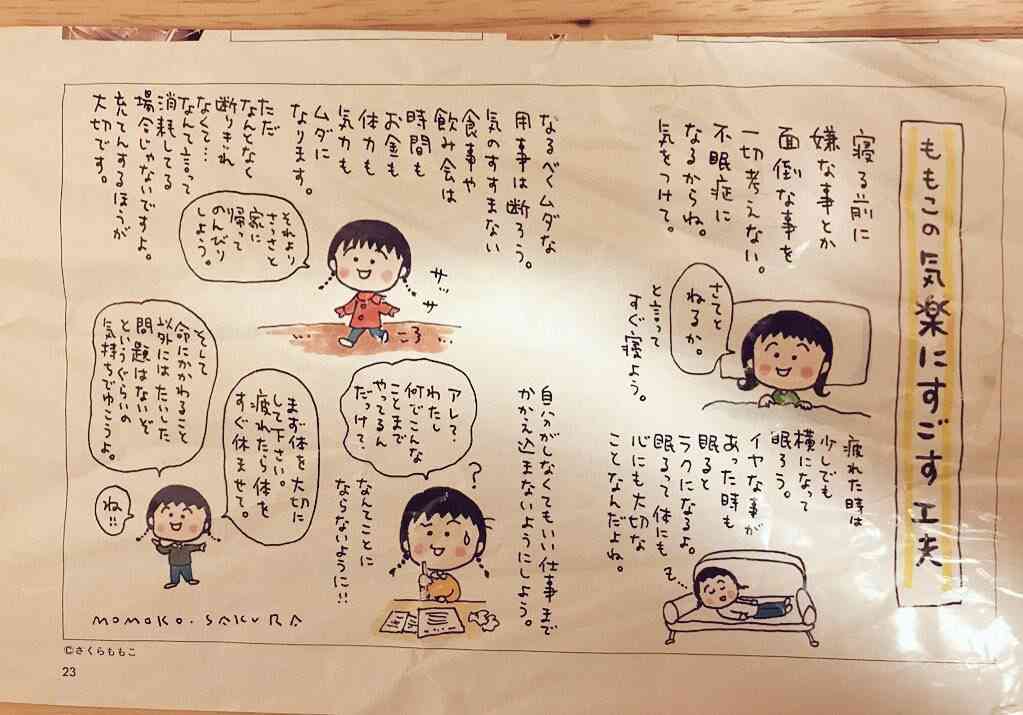 ももこの気楽にすごす工夫
寝る前に
嫌な事とか
面倒な事を
一切考えない。
不眠症に
なるからね。
気をつけて。
さてと
ねるか。
と言って
すぐ寝よう。
疲れた時は
少しでも
横になって
眠ろう。
イヤな事が
あった時も
眠ると
ラクになるよ。
眠るって体にも
心にも大切な
ことなんだよね。
なるべくムダな
用事は断ろう。
気のすすまない
食事や
飲み会は
時間も
お金も
体力も
気力も
ムダに
なります。
ただ
なんとなく
断りきれ
なくて…
なんて言って
消耗してる
場合じゃないですよ。
充てんするほうが
大切です。
それより
さっさと
家に
帰って
のんびり
しよう。
サッサ
自分がしなくてもいい仕事まで
かかえ込まないようにしよう。
アレ?
わたし
何でこんな
ことまで
やってるん
だっけ?
?
なんてことに
ならないように!!
まず体を大切に
して下さい。
疲れたら体を
すぐ休ませて。
そして
命にかかわること
以外にはたいした
問題はないぞ
というぐらいの
気持ちでゆこうよ。
ね!!
MOMOKO.SAKURA
©さくらももこ
23